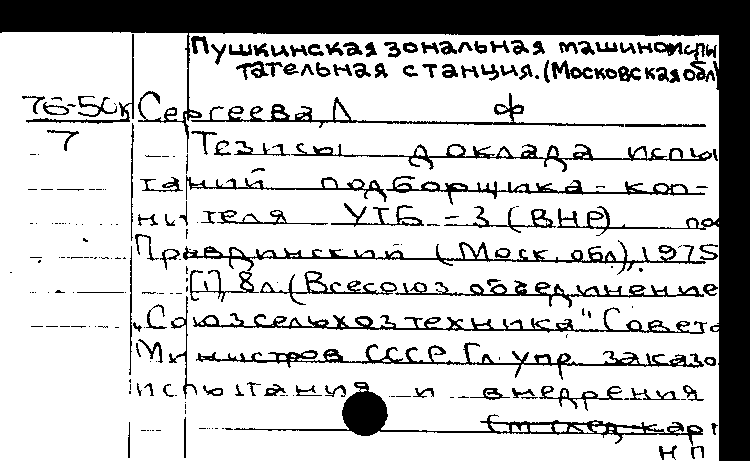 Пушкинская зональная машиноиспы
тательная станция. (Московская обл
76-50к Сергеева, Л ф
7 Тезисы доклада испы
таний подборщика-коп-
нителя УТБ-3 (ВНР). по
Правдинский (Моск. обл), 1975
[1], 8л. (Всесоюз. объединение
„Союзсельхозтехника" Совета
Министров СССР. Гл. упр. заказо
испытания и внедрения
(см след. кар
н п